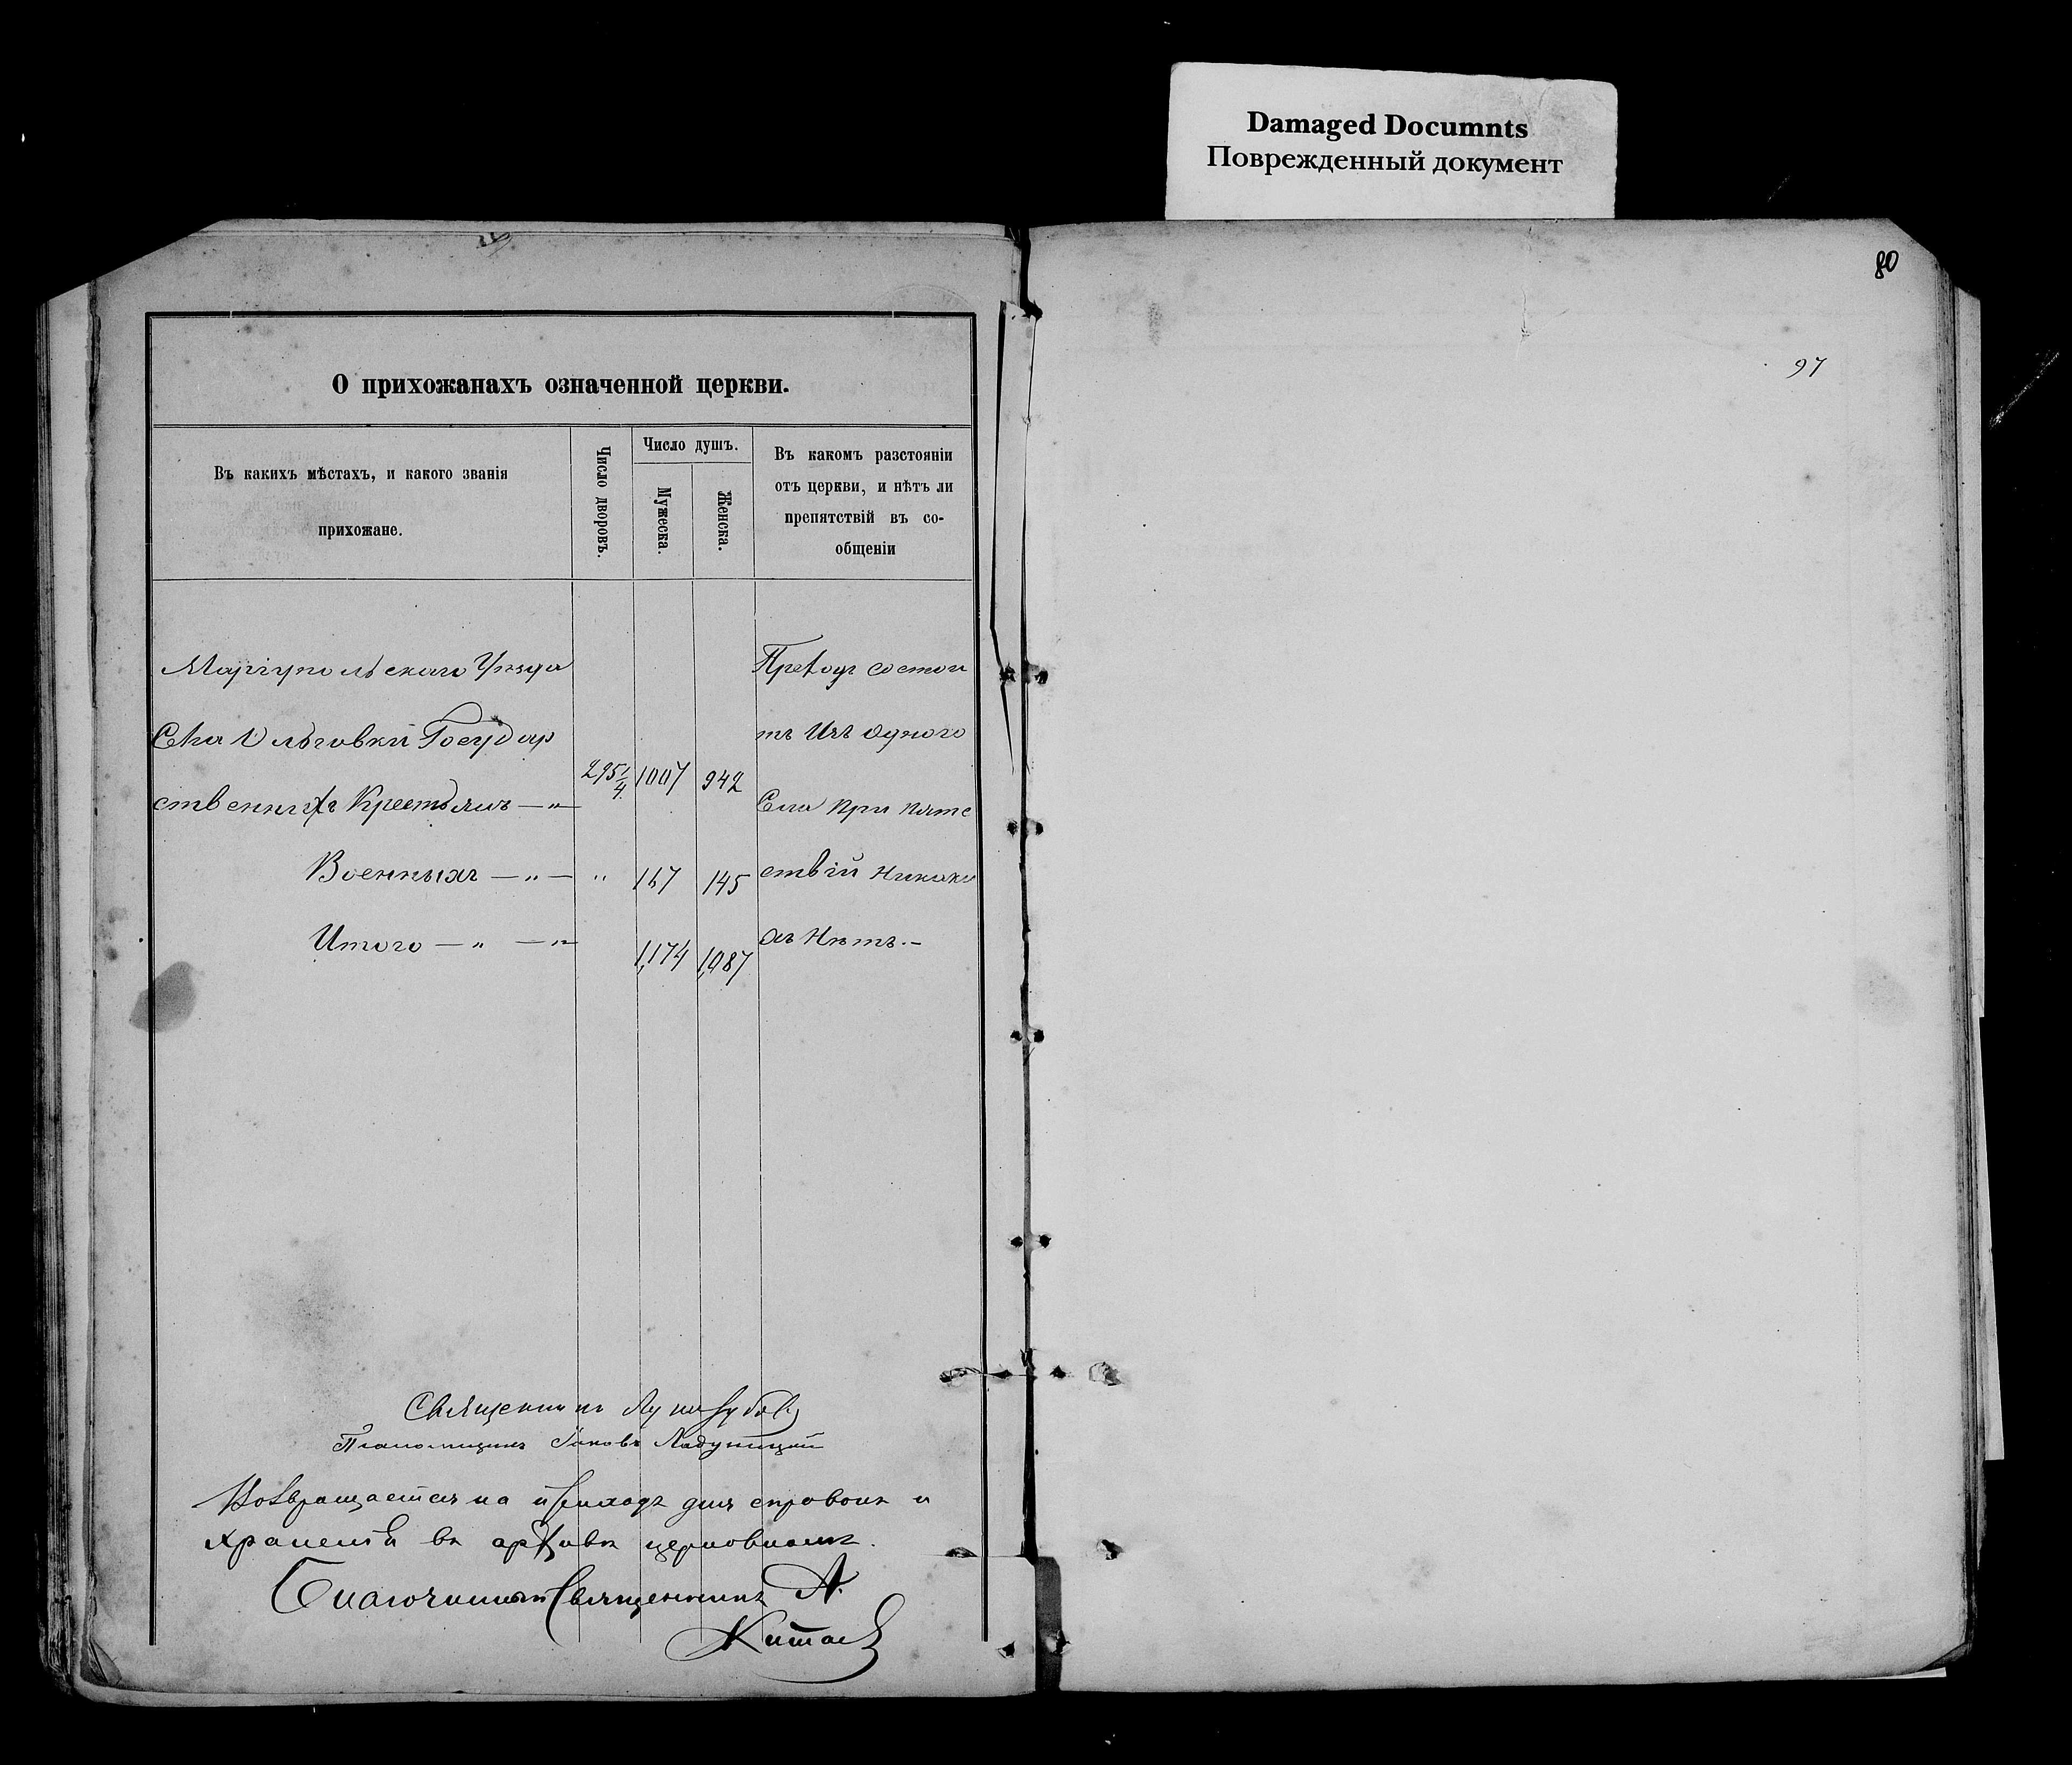 Damaged Documnts
Поврежденный документ
80
97
О прихожанахъ означенной церкви.
Въ какихъ мѣстахъ, и какого званія
прихожане.
Число дворовъ.
Число душъ.
Мужеска.
Женска.
Въ какомъ разстояніи
отъ церкви, и нѣтъ ли
препятствій въ со-
общеніи
Маріупольскаго Уѣзда
Села Ольговки Государ
ственныхъ Крестьянъ — „ —
295 1/4 1007 942
Военныхъ — „ — „ 167 145
Итого — „ — „ —
1,174 1,087
Приходъ состои
тъ Изъ Одного
Села препятс
ствій никаки
хъ Нѣтъ. —
Священникъ
Псаломщикъ Іаковъ
Возвращается на приходъ для справокъ и
храненія въ архивѣ церковномъ.
Благочинный Священникъ А.
Китаевъ